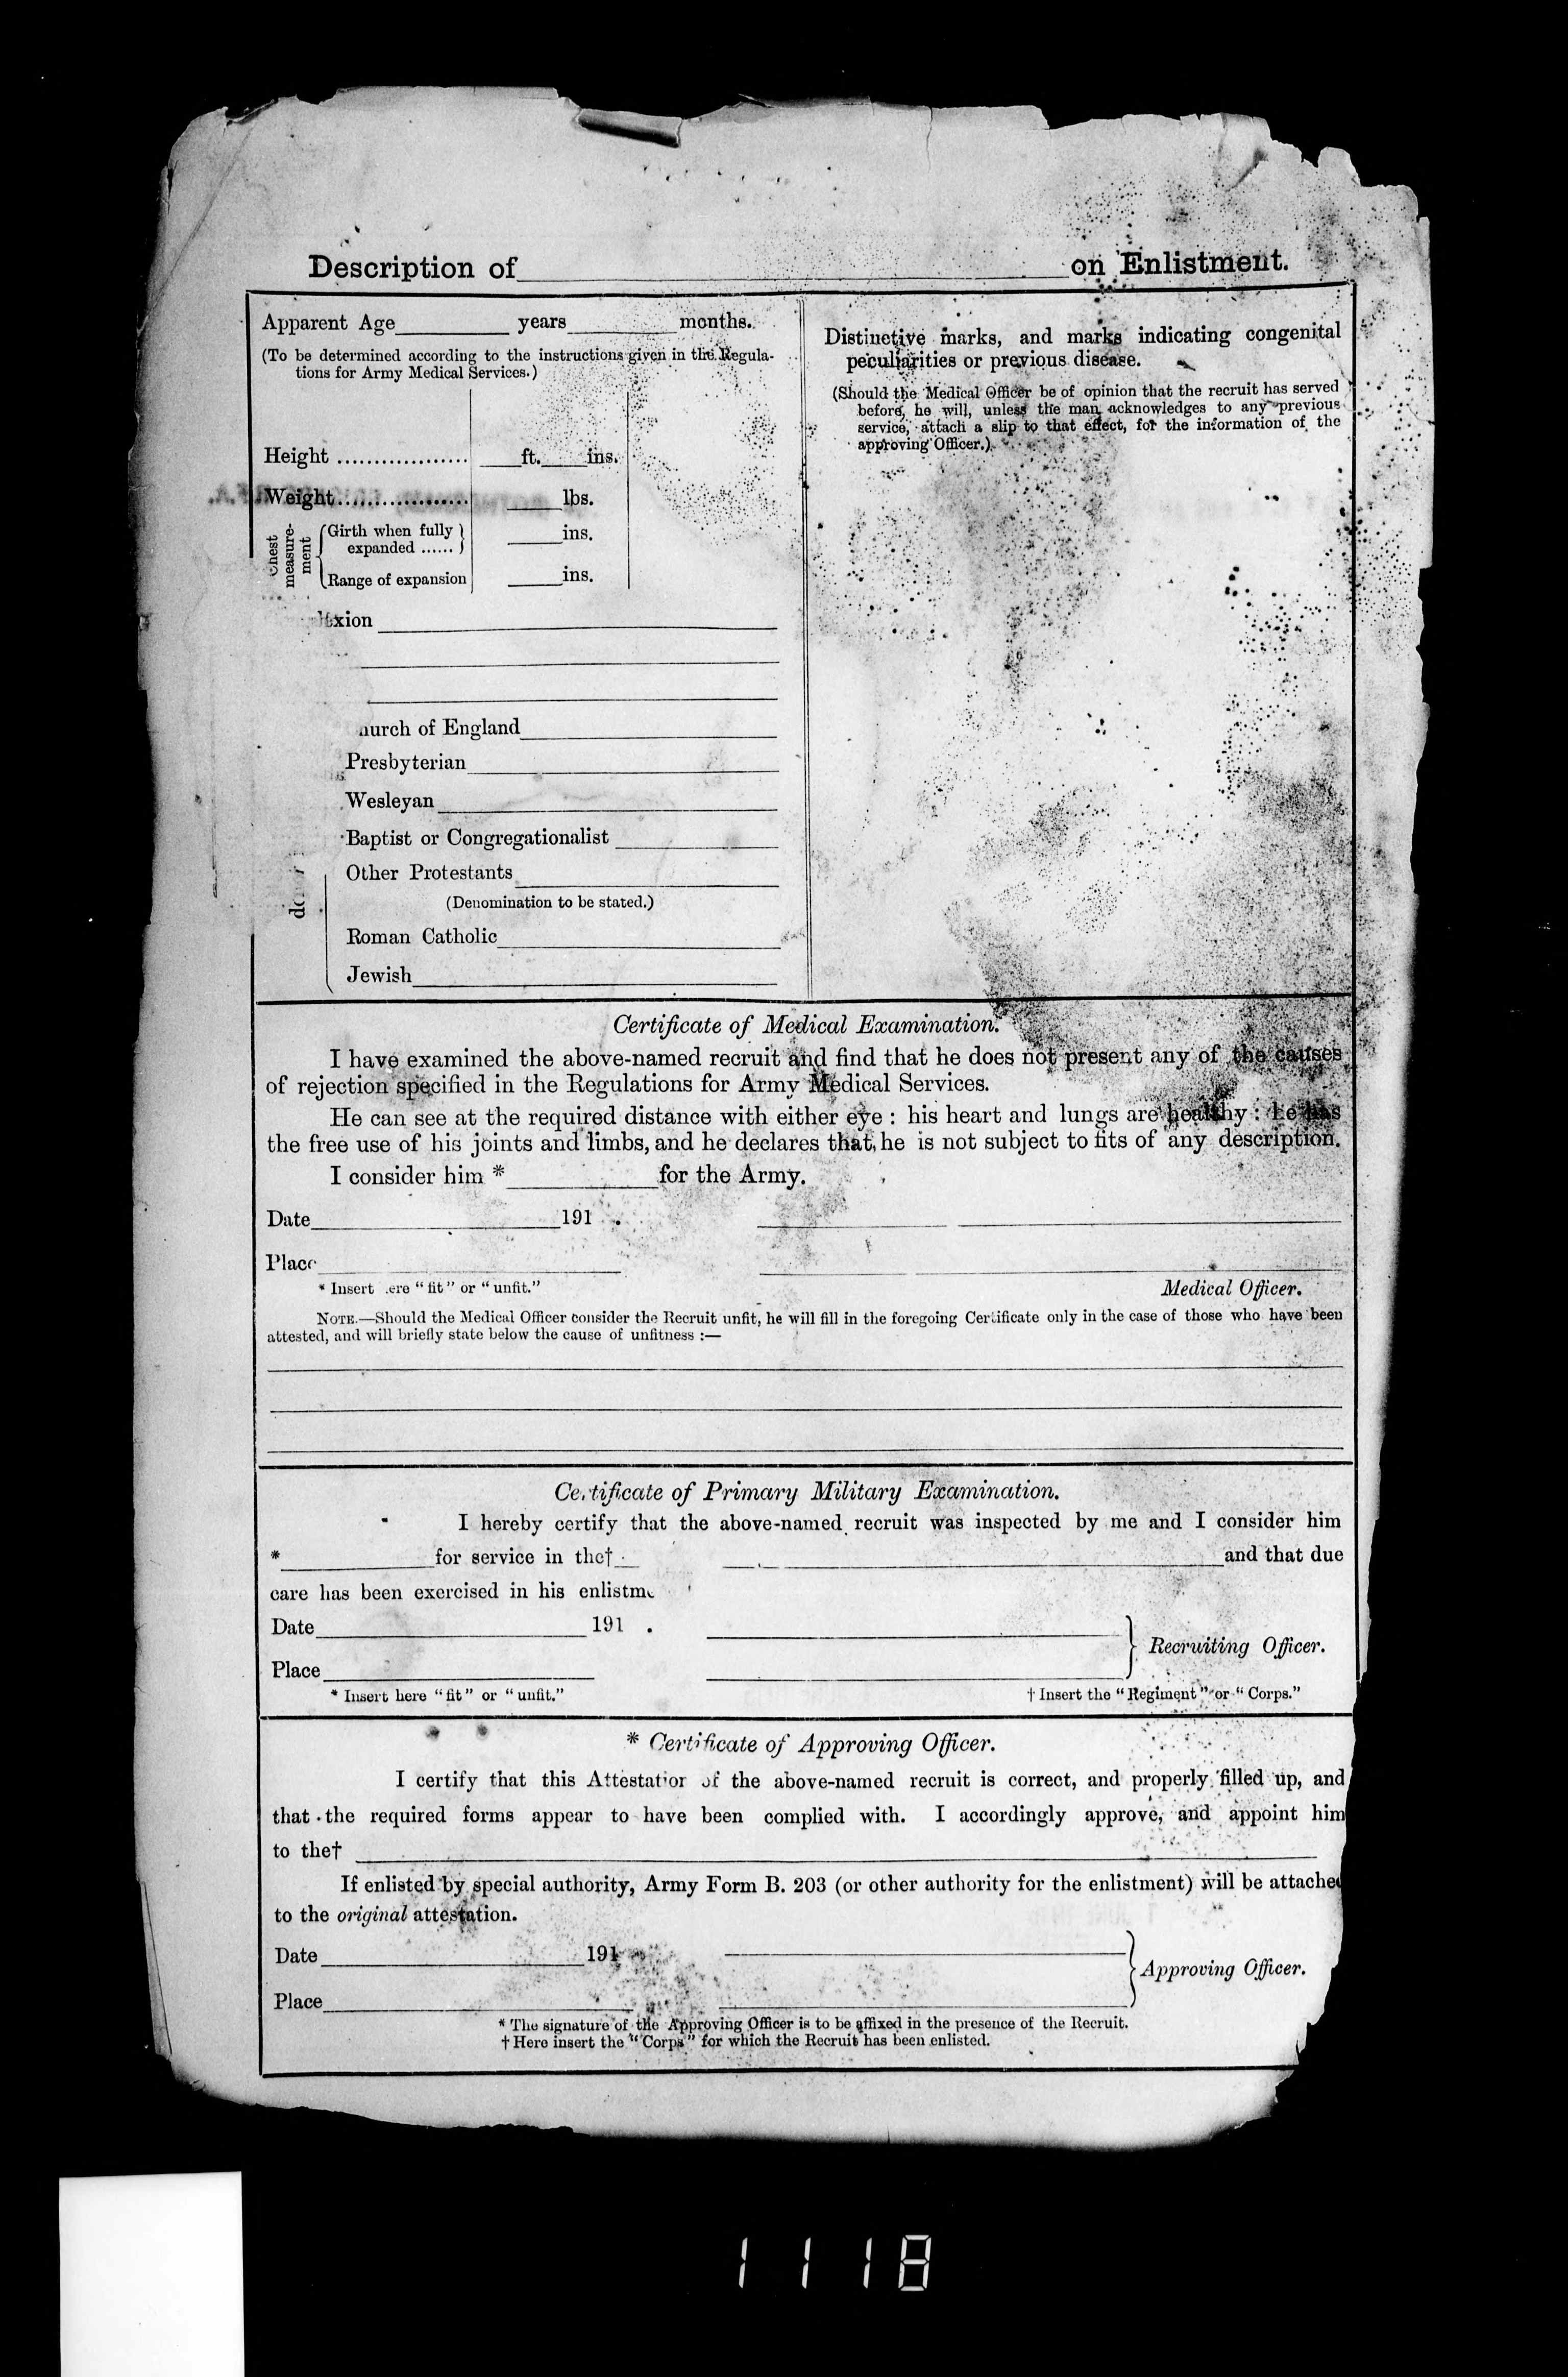 Description of on Enlistment.
Apparent Age years months.
(To be determined according to the instructions given in the Regula-
tions for Army Medical Services.)
Height .................. ft. ins.
Weight.................. lbs.
Chest measure-ment
Girth when fully
expanded ......
ins.
Range of expansion ins.
exion
urch of England
Presbyterian
Wesleyan
Baptist or Congregationalist
Other Protestants
(Denomination to be stated.)
Roman Catholic
Jewish
Distinctive marks, and marks indicating congenital
peculiarities or previous disease.
(Should the Medical Officer be of opinion that the recruit has served
before, he will, unless the man acknowledges to any previous
service, attach a slip to that effect, for the information of the
approving Officer.)
Certificate of Medical Examination.
I have examined the above-named recruit and find that he does not present any of the causes
of rejection specified in the Regulations for Army Medical Services.
He can see at the required distance with either eye : his heart and lungs are healthy : he has
the free use of his joints and limbs, and he declares that he is not subject to fits of any description.
I consider him * for the Army.
Date 191 .
Place
* Insert ere “fit” or “unfit.”
Medical Officer.
NOTE.—Should the Medical Officer consider the Recruit unfit, he will fill in the foregoing Certificate only in the case of those who have been
attested, and will briefly state below the cause of unfitness :—
Certificate of Primary Military Examination.
I hereby certify that the above-named recruit was inspected by me and I consider him
* for service in the† and that due
care has been exercised in his enlistm
Date 191 .
Recruiting Officer.
Place
* Insert here “fit” or “unfit.” † Insert the “Regiment” or “Corps.”
* Certificate of Approving Officer.
I certify that this Attestation of the above-named recruit is correct, and properly filled up, and
that the required forms appear to have been complied with. I accordingly approve, and appoint him
to the†
If enlisted by special authority, Army Form B. 203 (or other authority for the enlistment) will be attached
to the original attestation.
Date 191
Approving Officer.
Place
* The signature of the Approving Officer is to be affixed in the presence of the Recruit.
† Here insert the “Corps” for which the Recruit has been enlisted.
1118